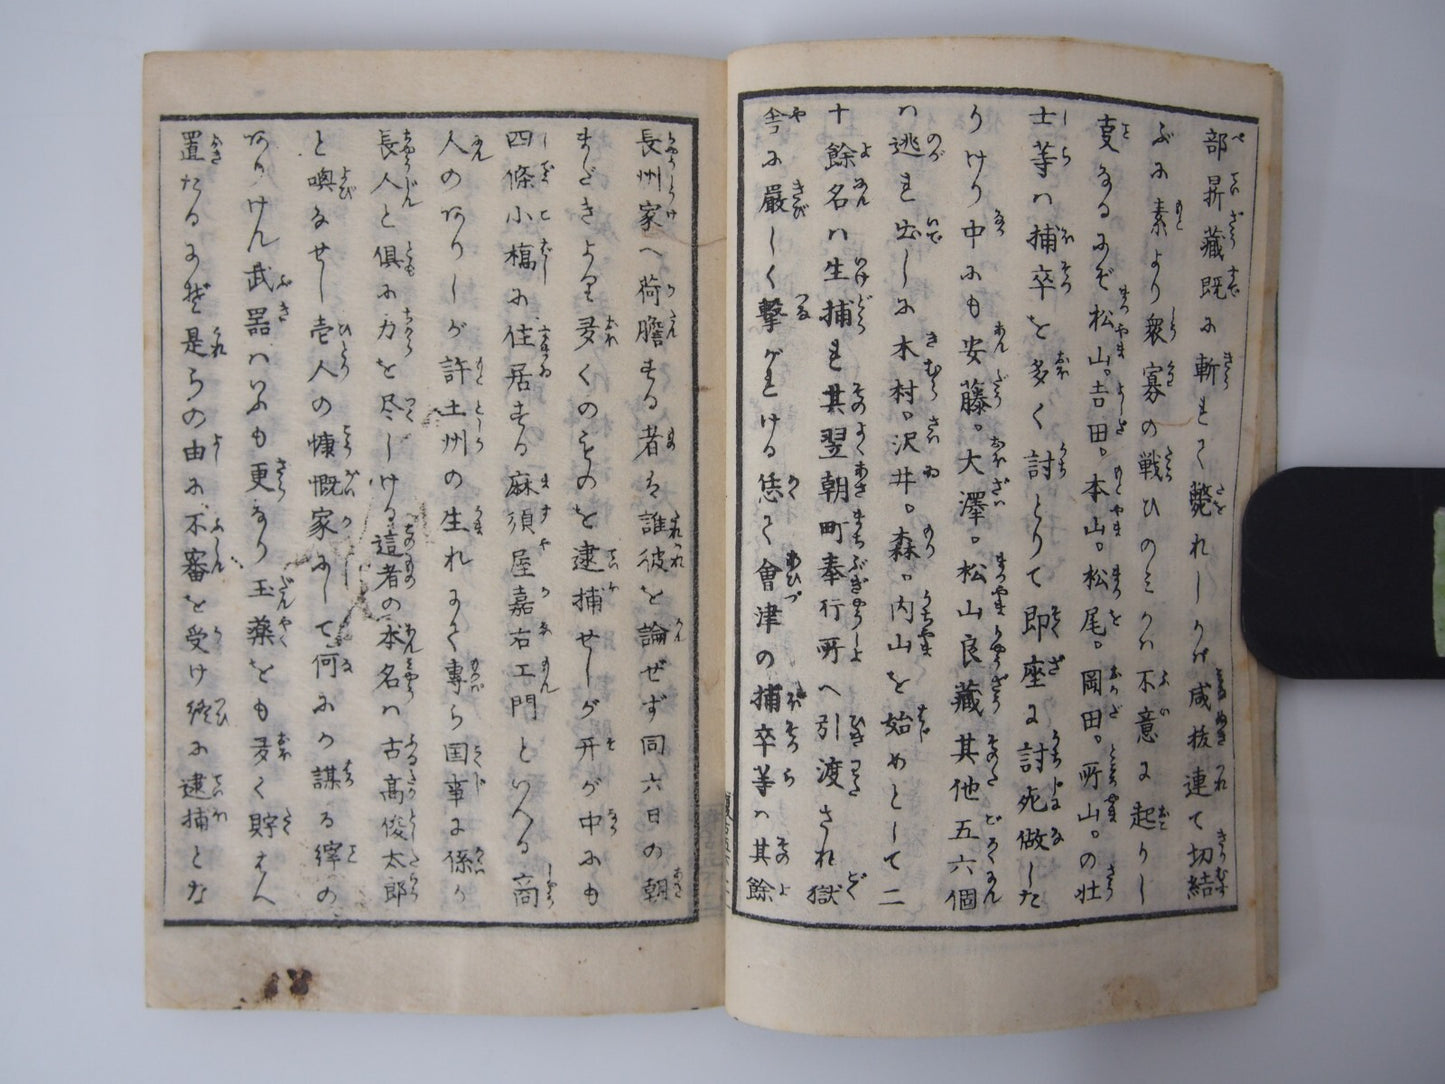 部昇藏既に斬れて斃れしかば咸抜連て切結
ぶに素より衆寡の戦ひのミかハ不意に起りし
夏なるにぞ松山。吉田。本山。松尾。岡田。所山。の壮
士等ハ捕卒を多く討とりて即座に討死做した
りけり中にも安藤。大澤。松山良藏其他五六個
ハ逃れ出しに木村。沢井。森。内山を始めとして二
十餘名ハ生捕れ其翌朝町奉行所へ引渡され獄
舎に厳しく撃がれける恁て會津の捕卒等ハ其餘
長州家へ荷膽する者を誰彼を論ぜず同六日の朝
までより多くのものを逮捕せしが开が中にも
四條小橋に住居する麻須屋嘉右エ門といへる商
人のありしが許土州の生れにて專ら国事に係り
長人と俱に力を尽しける這者の本名ハ古高俊太郎
と喚なせし壱人の慷慨家にして何にか謀る縡の
ありけん武器ハいふも更なり玉藥をも多く貯へ
置たるにぞ是らの由に不審を受け終に逮捕とな